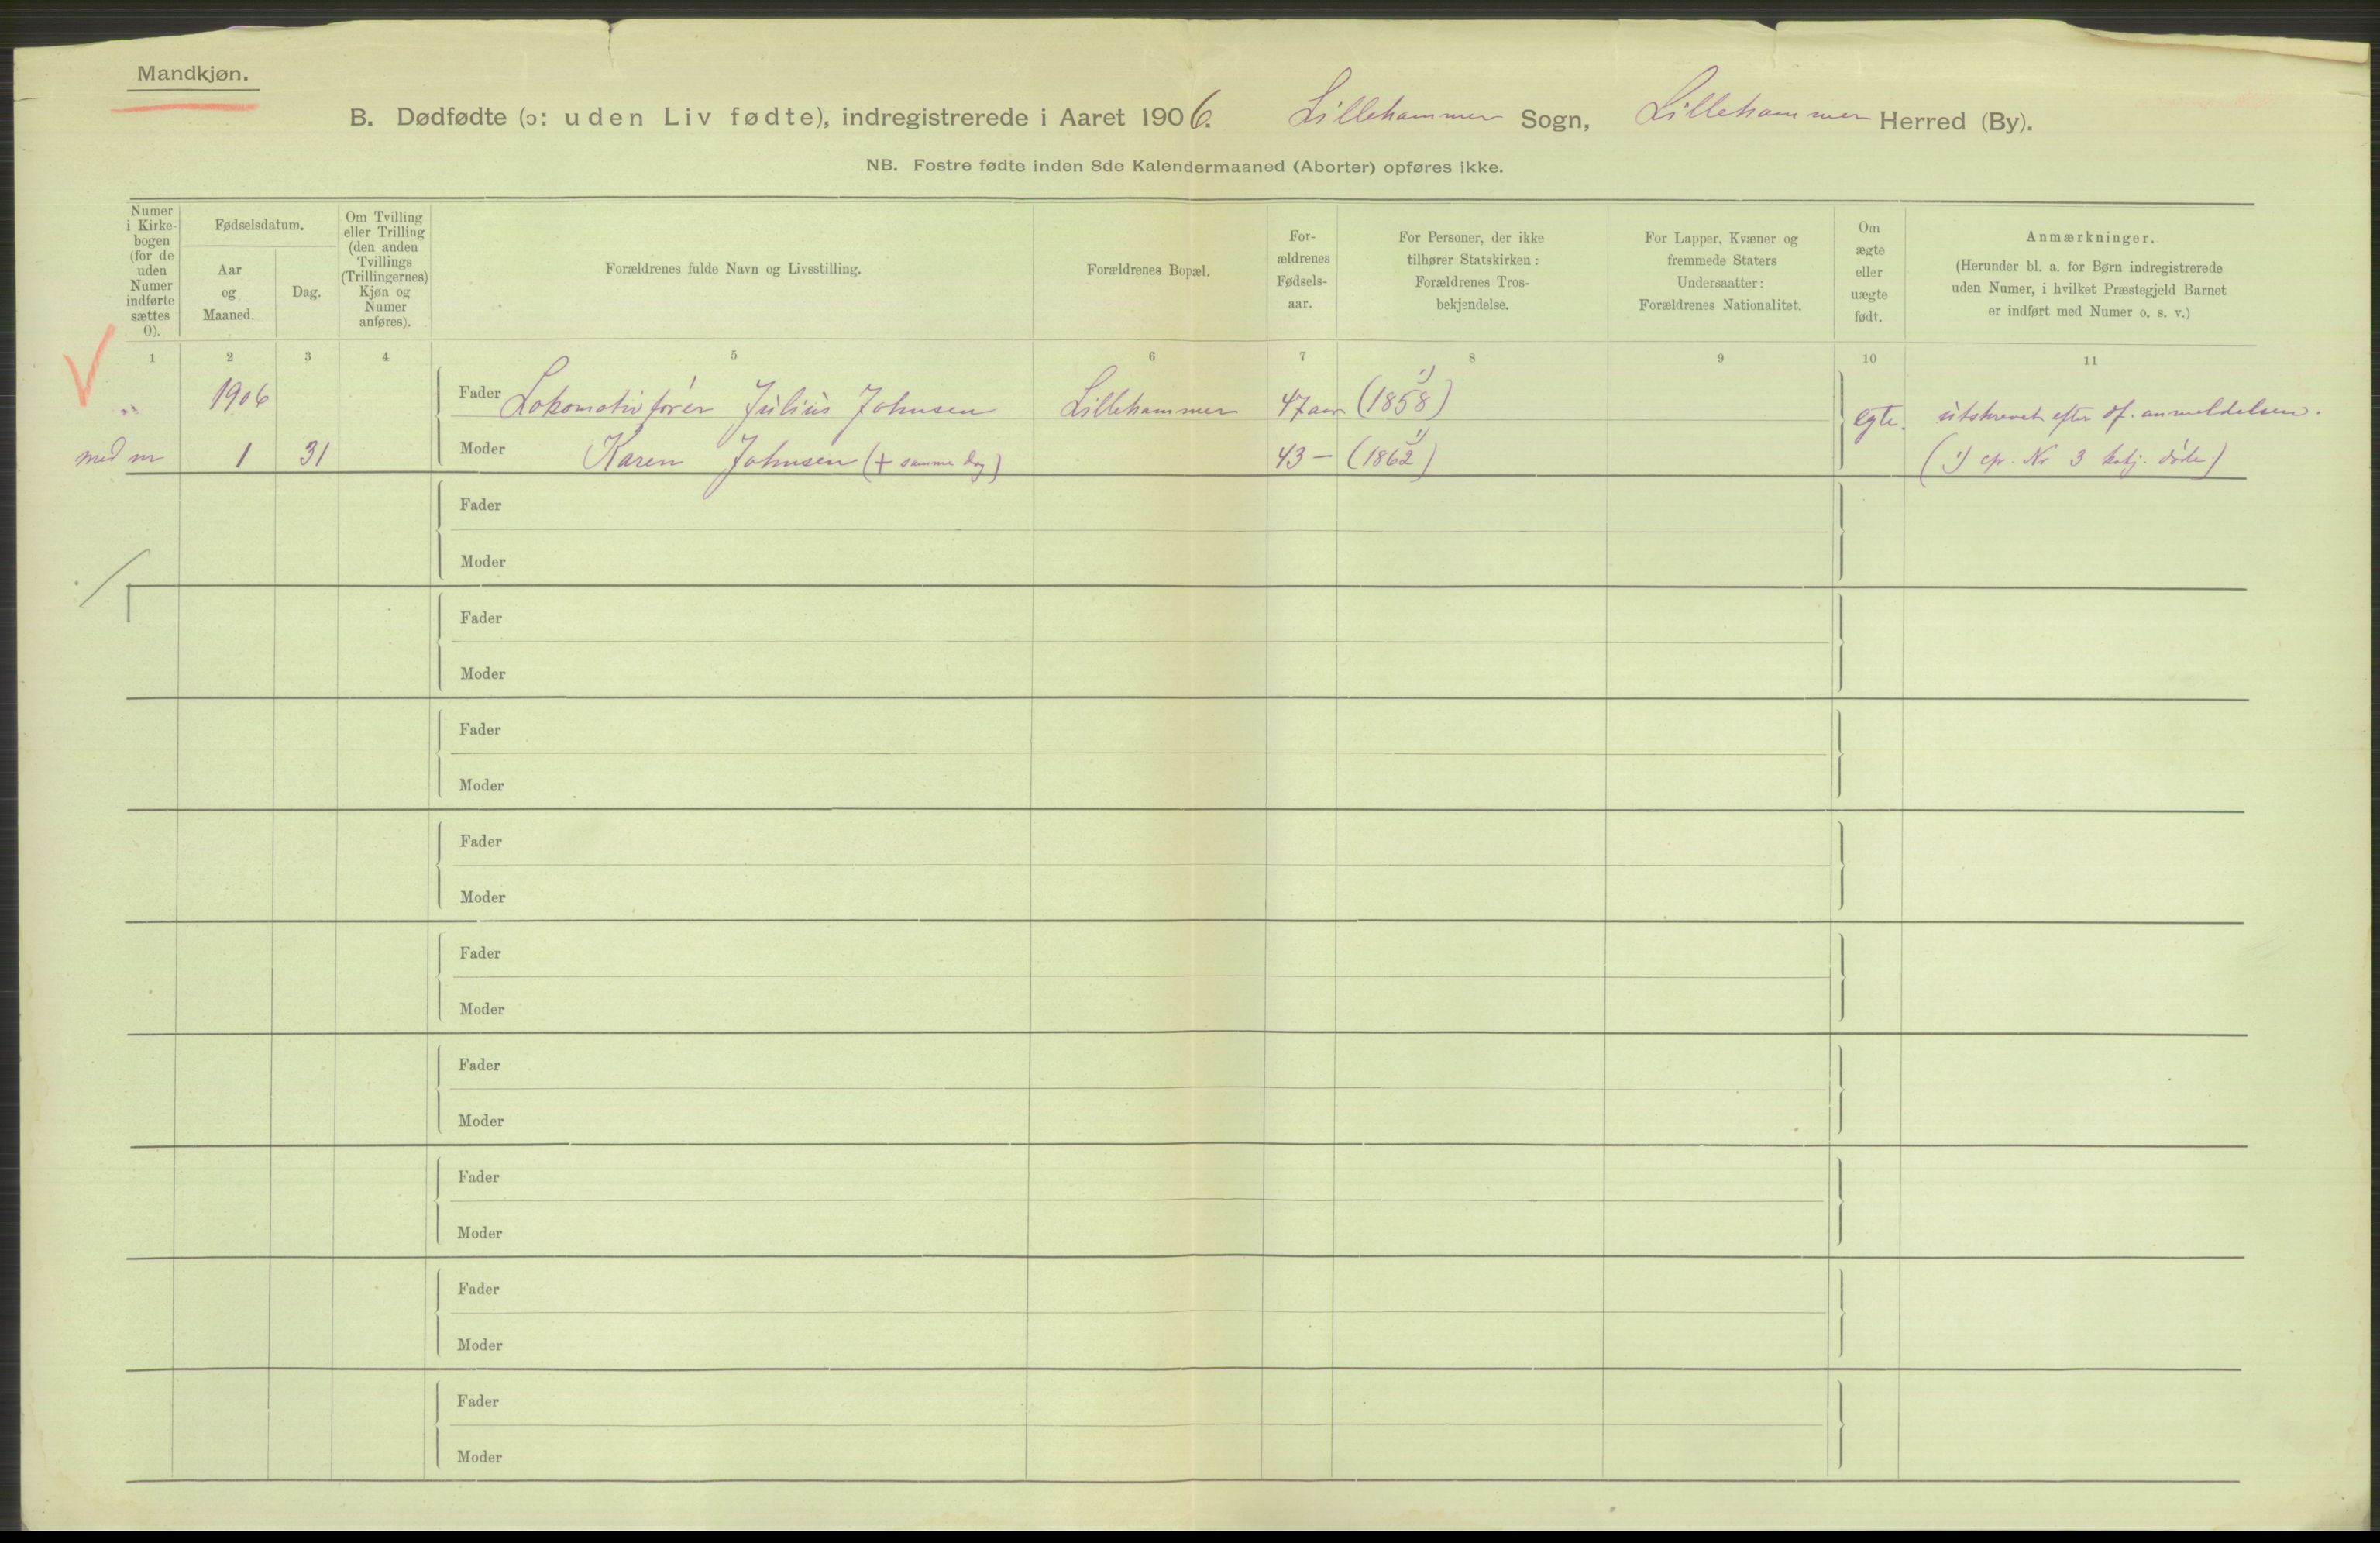 Mandkjøn.
B. Dødfødte (ɔ: uden Liv fødte), indregistrerede i Aaret 1906. Lillehammer Sogn, Lillehammer Herred (By).
NB. Fostre fødte inden 8de Kalendermaaned (Aborter) opføres ikke.
Numer
i Kirke-
bogen
(for de
uden
Numer
indførte
sættes
0).
Fødselsdatum.
Aar
og
Maaned.
Dag.
Om Tvilling
eller Trilling
(den anden
Tvillings
(Trillingernes)
Kjøn og
Numer
anføres).
Forældrenes fulde Navn og Livsstilling.
Forældrenes Bopæl.
For-
ældrenes
Fødsels-
aar.
For Personer, der ikke
tilhører Statskirken:
Forældrenes Tros-
bekjendelse.
For Lapper, Kvæner og
fremmede Staters
Undersaatter:
Forældrenes Nationalitet.
Om
ægte
eller
uægte
født.
Anmærkninger.
(Herunder bl. a. for Børn indregistrerede
uden Numer, i hvilket Præstegjeld Barnet
er indført med Numer o. s. v.)
1 2 3 4 5 6 7 8 9 10 11
1906 Fader Lokomotivfører Julius Johnsen Lillehammer 47 aar (1858) 1) egte. utskrevet efter of. anmeldelsen.
med nr 1 31 Moder Karen Johnsen (+ samme dag) 43 - (1862) 1) (1) cfr. Nr 3 kvkj. døde.)
Fader
Moder
Fader
Moder
Fader
Moder
Fader
Moder
Fader
Moder
Fader
Moder
Fader
Moder
Fader
Moder
Fader
Moder